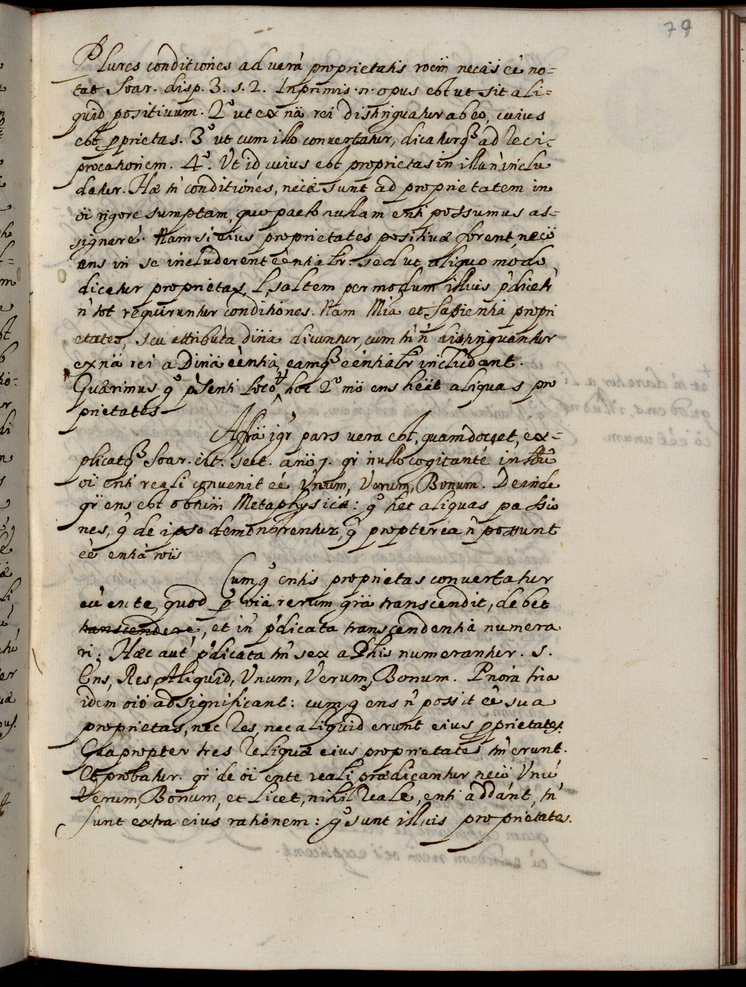 79
Plures conditiones ad verã proprietatis roem necãs eê no=
tat Soar. disp. 3. s. 2. Inprimis .n. opus est ut sit ali=
quid positiuum. 2º ut ex nã rei distinguatur ab eo, cuius
est pprietas. 3º ut cum illo convertatur, dicaturq3 ad reci=
procationem. 4º. Ut id cuius est proprietas in illa ñ inclu
datur. Hae tñ conditiones, necẽ sunt ad proprietatem in
oi rigore sumptam, quo pacto nullam enti possumus as=
signare. Nam si eius proprietates positivæ forent necõ
ens in se includerent eẽntialr. sed ut aliquo modo
dicatur proprietas, l, saltem per modum illius pdicati
ñ tot requiruntur conditiones. Nam Mĩa et Sapientia propri
etates, seu attributa dĩna dicuntur, cum tñ ñ distinguantur
ex nã rei a Dinã eẽntia, eamq3 eẽntialr includant.
Quærimus gº pñsenti loco, hoc 2º mõ ens hẽat aliquas pro
prietates.
Affirã igr pars vera est, quam docet, ex=
plicatq3 Soar. cit. sect. anõ 7. qr nullo cogitante intũ
oi enti reali convenit eê Unum, Verum, Bonum. Deinde
qr ens est obtum Metaphysicæ: gº het aliquas passio
nes, q de ipso demonstrentur, q propterea ñ possunt
eê entia rõis
Cum gº entis proprietas convertatur
cũ ente, quod p oia rerum grã transcendit, debet
transcendere, et in pdicata transcendentia numera
ri. Hæc aut pdicata tñ sex a Phis numerantur. s.
Ens, Res, Aliquid, Unum, Verum, Bonum. Priora tria
idem oiõ adsignificant: cum gº ens ñ possit eê sua
proprietas, nec Res, nec aliquid erunt eius pprietates.
Quapropter tres reliquæ eius proprietates tñ erunt.
Et probatur. qr de oi ente reali prædicantur necõ Unũ
Verum, Bonum, et licet, nihil reale, enti addant, tñ
sunt extra eius rationem: gº sunt illius proprietates.